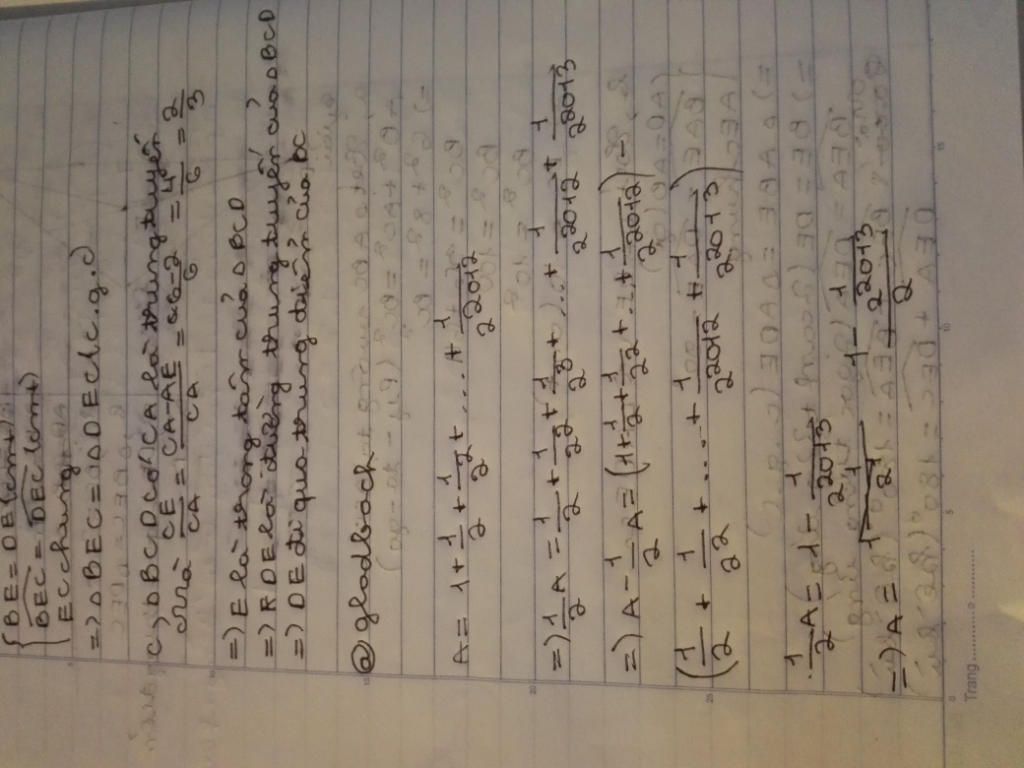 {BE = DE (cmt)
BEC = DEC (cmt)
EC chung
=> ΔBEC = ΔDEC (c.g.c)
c) ΔBCD có CA là trung tuyến
mà CE/CA = (CA-AE)/CA = (6-2)/6 = 4/6 = 2/3
=> E là trọng tâm của ΔBCD
=> DE là đường trung tuyến của ΔBCD
=> DE đi qua trung điểm của BC
@gladbach
A = 1 + 1/2 + 1/2² + .... + 1/2^2012
=> 1/2 A = 1/2 + 1/2² + 1/2³ + ... + 1/2^2012 + 1/2^2013
=> A - 1/2 A = (1 + 1/2 + 1/2² + ... + 1/2^2012) -
(1/2 + 1/2² + .... + 1/2^2012 + 1/2^2013)
1/2 A = 1 - 1/2^2013
=> A = (1 - 1/2^2013)/(1/2) = (1 - 1/2^2013)/2
Trang